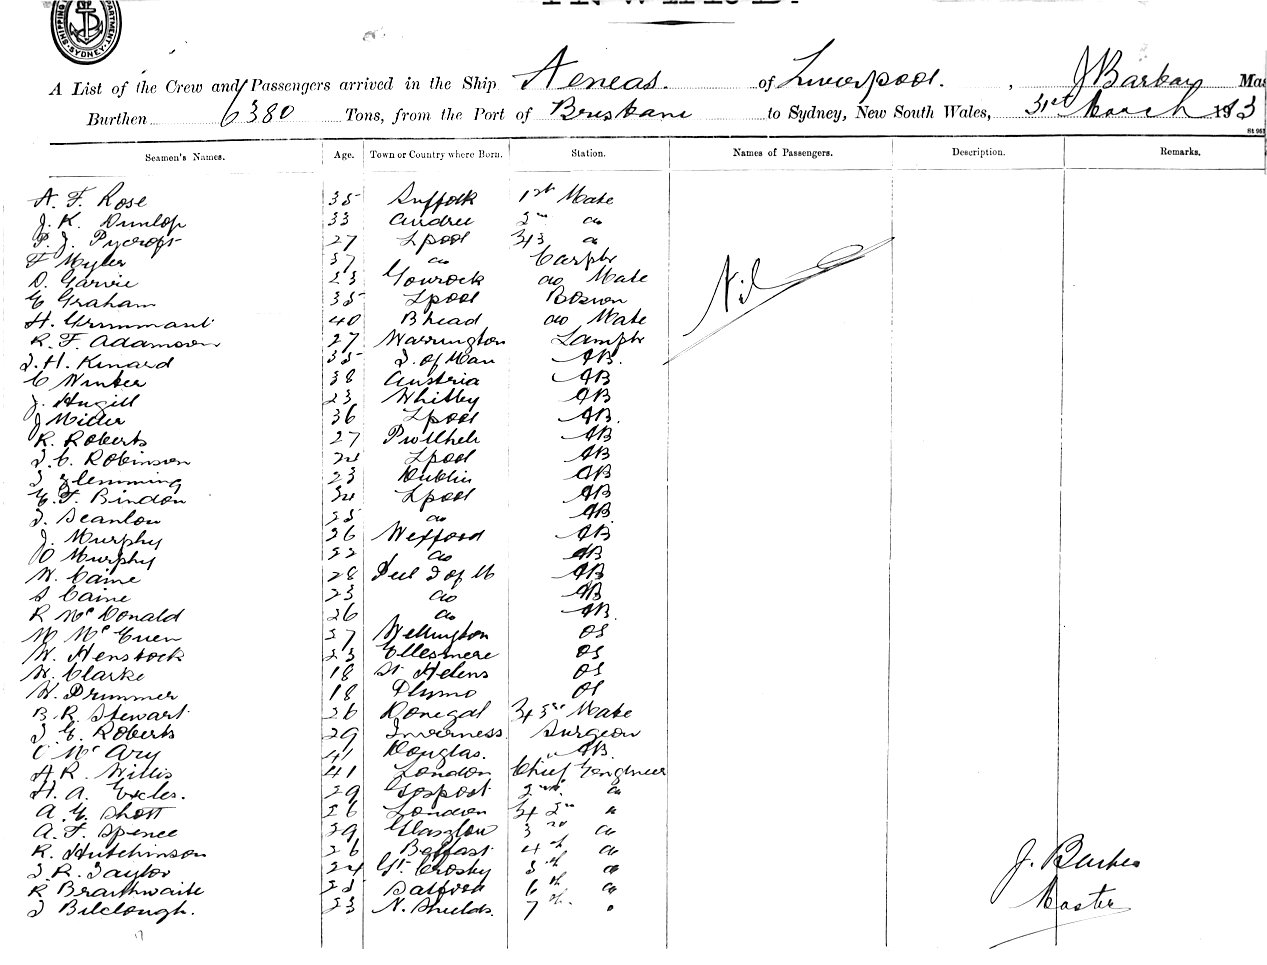 DEPARTMENT SHIPPING SYDNEY
A List of the Crew and Passengers arrived in the Ship Aeneas. of Liverpool. , J Barkay Mas
Burthen 6380 Tons, from the Port of Brisbane to Sydney, New South Wales, 31st March 1913
Seamen's Names. Age. Town or Country where Born. Station. Names of Passengers. Description. Remarks.
A. F. Rose 35 Suffolk 1st Mate
J. K. Dunlop 33 2nd do
P. J. Pycroft 27 Lpool do
F Myler 37 do Carptr
D. Garvie 23 Gourock do Mate
E Graham 35 Lpool Boswn
H. Grimmant 40 Bhead do Mate
R. F. Adamson 27 Warrington Lamptr
J. H. Kinard 35 I. of Man AB.
C Winter 38 Austria AB
J. Hugill 23 Whitby AB
J Miller 36 Lpool AB.
R. Roberts 27 Pwllheli AB
J. C. Robinson 24 Lpool AB
J Flemming 23 Dublin AB
E. F. Bindon 34 Lpool AB
J. Scanlon 25 do AB
J. Murphy 26 Wexford AB
O Murphy 22 do AB
W. Caine 28 Peel I of M AB
S Caine 23 do AB
R McDonald 26 do AB.
M McEuen 27 Wellington OS
W. Henstock 23 Ellesmere OS
W. Clarke 18 St Helens OS
W. Drummer 18 Plymo OS
B. R. Stewart 26 Donegal Mate
J. E. Roberts 29 Inverness Surgeon
C McAry 41 Douglas. AB.
A. R. Willis 41 London Chief Engineer
H. A. Eccles. 29 Gosport 2nd. do
A. G. Shott 26 London 2nd "
A. F. Spence 29 Glasglow 3rd do
R. Hutchinson 26 Belfast 4th do
J. R. Taylor 24 Gt. Crosby 5th do
R Braithwaite 25 Salford 6th do
J Bilclough. 23 N. Shields. 7th. "
Nil
J. Barkay
Master